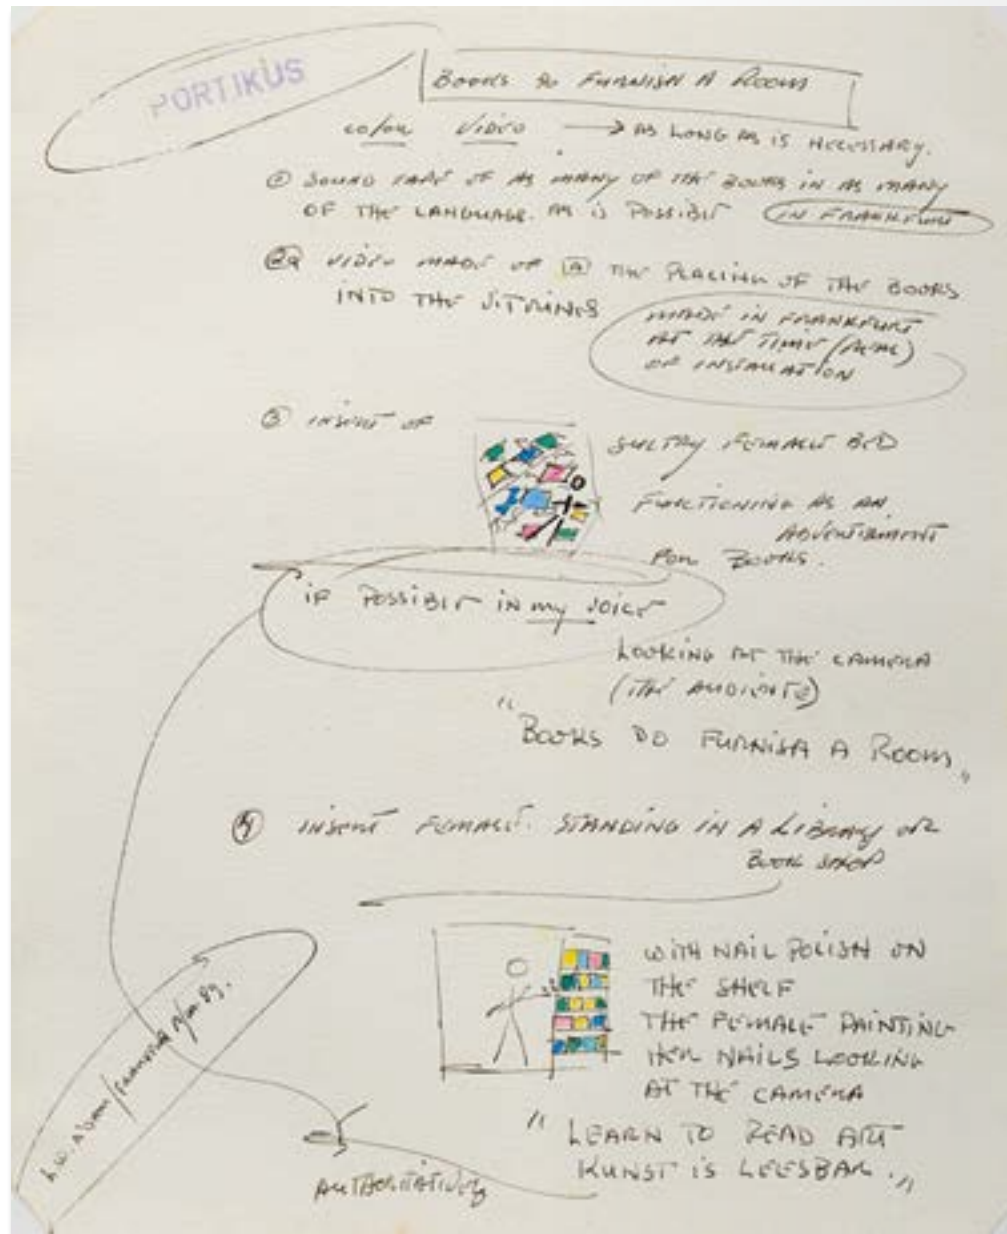 PORTIKUS
BOOKS DO FURNISH A ROOM
COLOR VIDEO → AS LONG AS IS NECESSARY.
① SOUND TAPE OF AS MANY OF THE BOOKS IN AS MANY
OF THE LANGUAGE. AS IS POSSIBLE IN FRANKFURT
VIDEO MADE OF A THE PLACING OF THE BOOKS
INTO THE VITRINES
MADE IN FRANKFURT
AT THE TIME (REAL)
OF INSTALLATION
③ INSERT OF
SULTRY FEMALE BED
FUNCTIONING AS AN
ADVERTISMENT
FOR BOOKS.
IF POSSIBLE IN my VOICE
LOOKING AT THE CAMERA
(THE AUDIENCE)
"BOOKS DO FURNISH A ROOM"
④ INSERT FEMALE. STANDING IN A LIBRARY OR
BOOK SHOP
WITH NAIL POLISH ON
THE SHELF
THE FEMALE PAINTING
HER NAILS LOOKING
AT THE CAMERA
"LEARN TO READ ART
KUNST IS LEESBAR."
AUTHORITATIVELY
L.W.